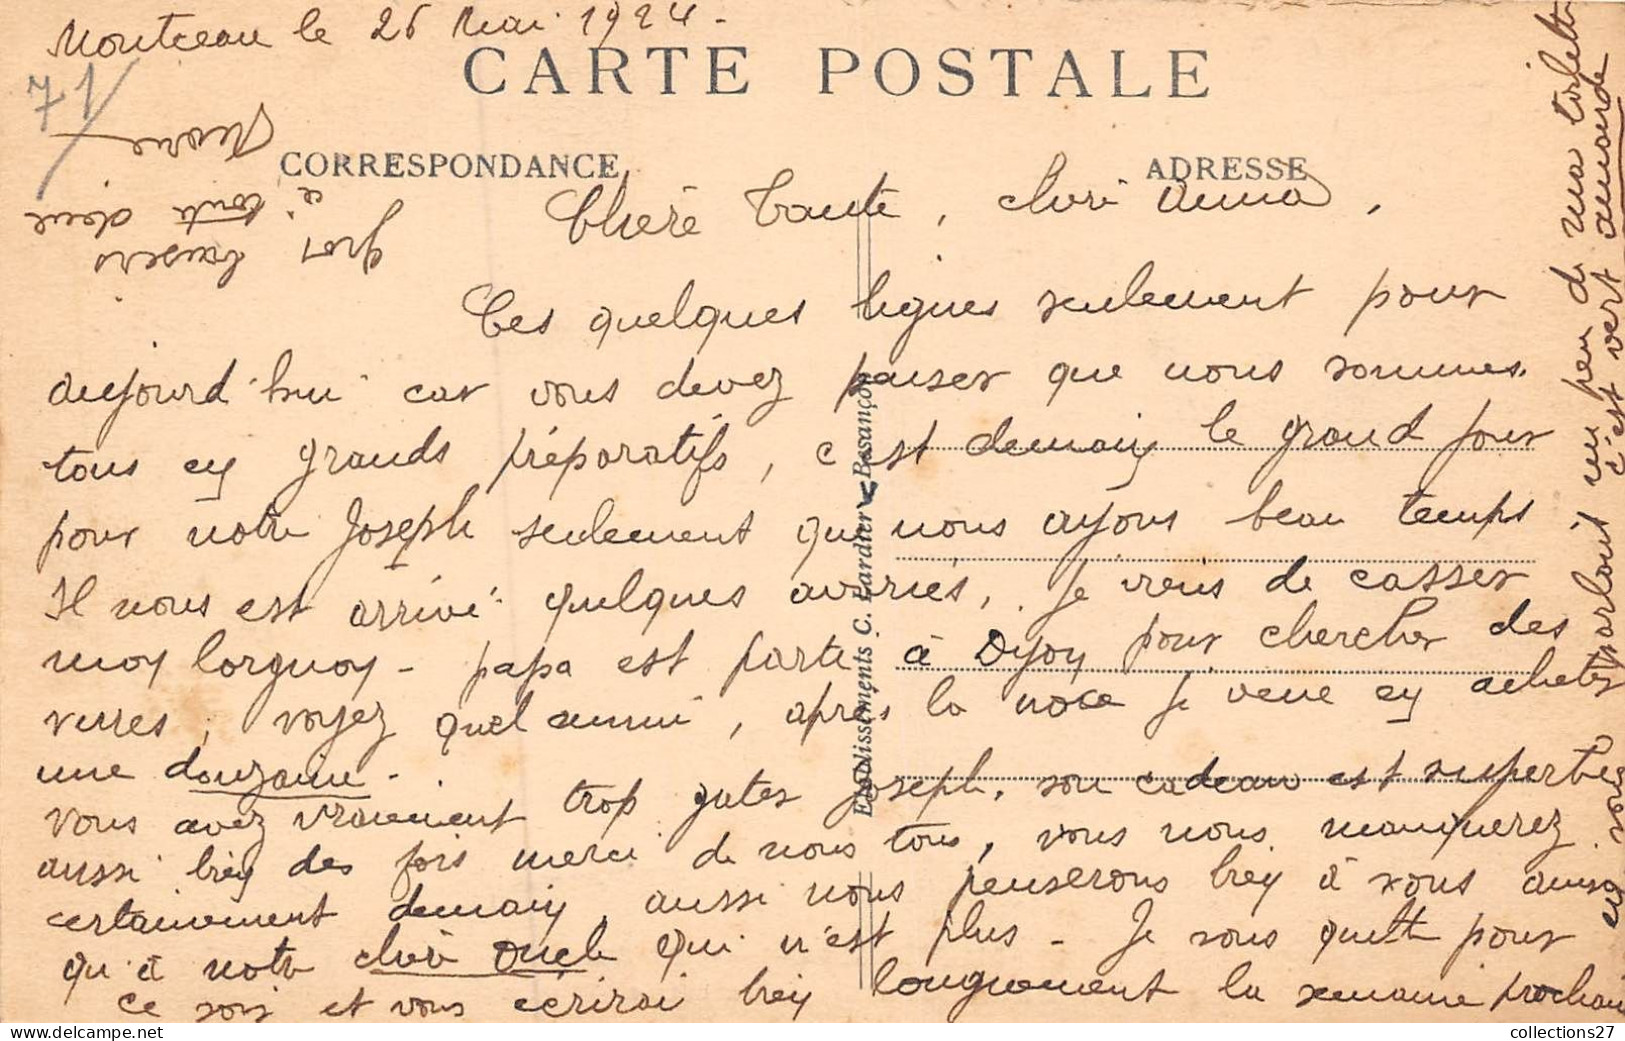 Montceau le 26 Mai 1924.
71
CARTE POSTALE
CORRESPONDANCE
ADRESSE
Chère Tante, chère Anna,
Ces quelques lignes seulement pour
aujourd'hui car vous devez penser que nous sommes
tous en grands préparatifs, c'est demain le grand jour
pour notre Joseph seulement que nous ayons beau temps
Il nous est arrivé quelques avaries, je viens de casser
mon lorgnon - papa est parti à Dijon pour chercher des
verres, voyez quel ennui, après la noce je veux en acheter
une douzaine -
vous avez vraiment trop gatés Joseph, son cadeau est superbe
aussi bien des fois merci de nous tous, vous nous manquerez
certainement demain, aussi nous penserons bien à vous ainsi
qu'à notre cher Oncle qui n'est plus - Je vous quitte pour
ce soir et vous écrirai bien longuement la semaine prochain
en vous parlant un peu de ma toilette
c'est vert amande
gros baisers
à toute deux
Établissements C. Lardier - Besançon
collections27